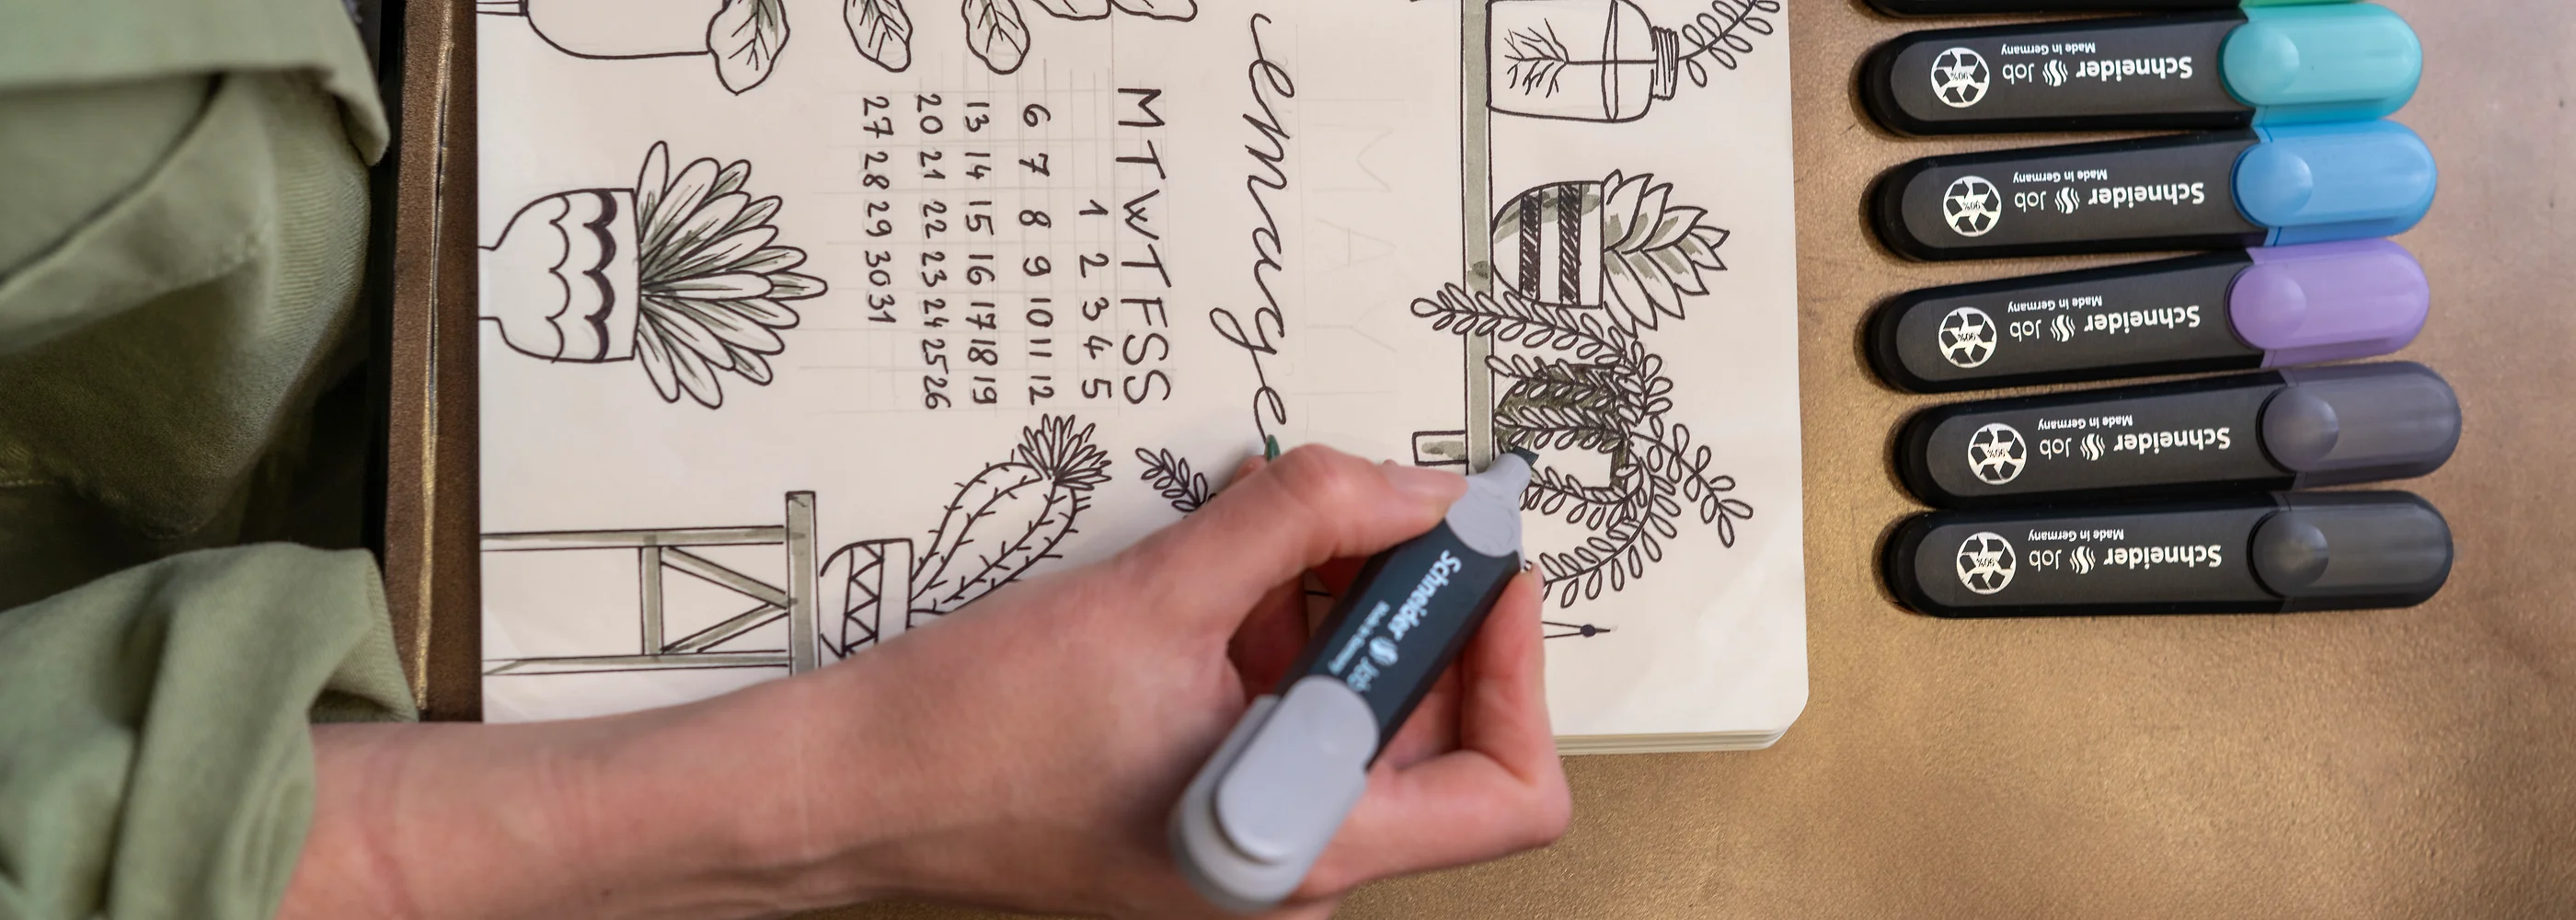 MAY
M T W T F S S
1 2 3 4 5
6 7 8 9 10 11 12
13 14 15 16 17 18 19
20 21 22 23 24 25 26
27 28 29 30 31
Schneider Job
Made in Germany
Schneider Job
Made in Germany
90%
Schneider Job
Made in Germany
90%
Schneider Job
Made in Germany
90%
Schneider Job
Made in Germany
90%
Schneider Job
Made in Germany
90%